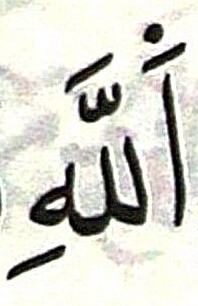 اَللَّهِ